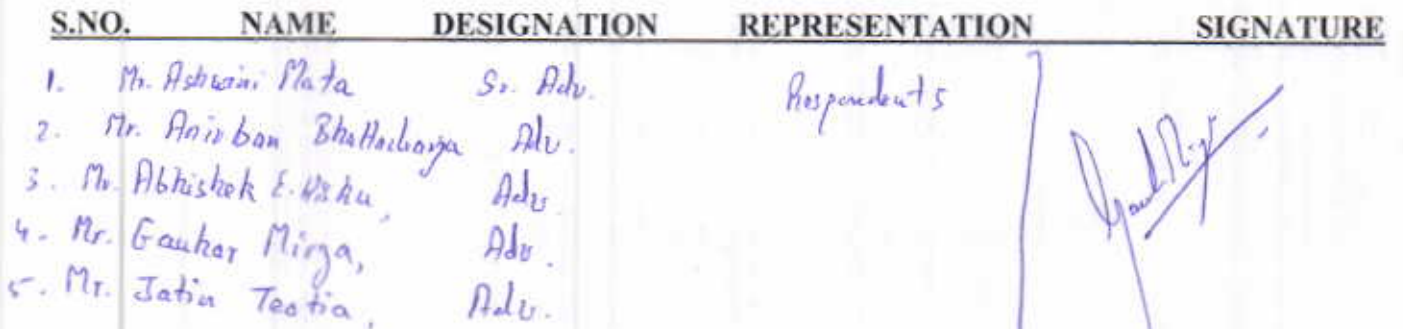 S.NO. NAME DESIGNATION REPRESENTATION SIGNATURE
1. Mr. Ashwini Mata Sr. Adv. Respondents
2. Mr. Anirban Bhattacharya Adv.
3. Mr. Abhishek Adv.
4. Mr. Gauhar Mirza, Adv.
5. Mr. Jatin Teotia, Adv.